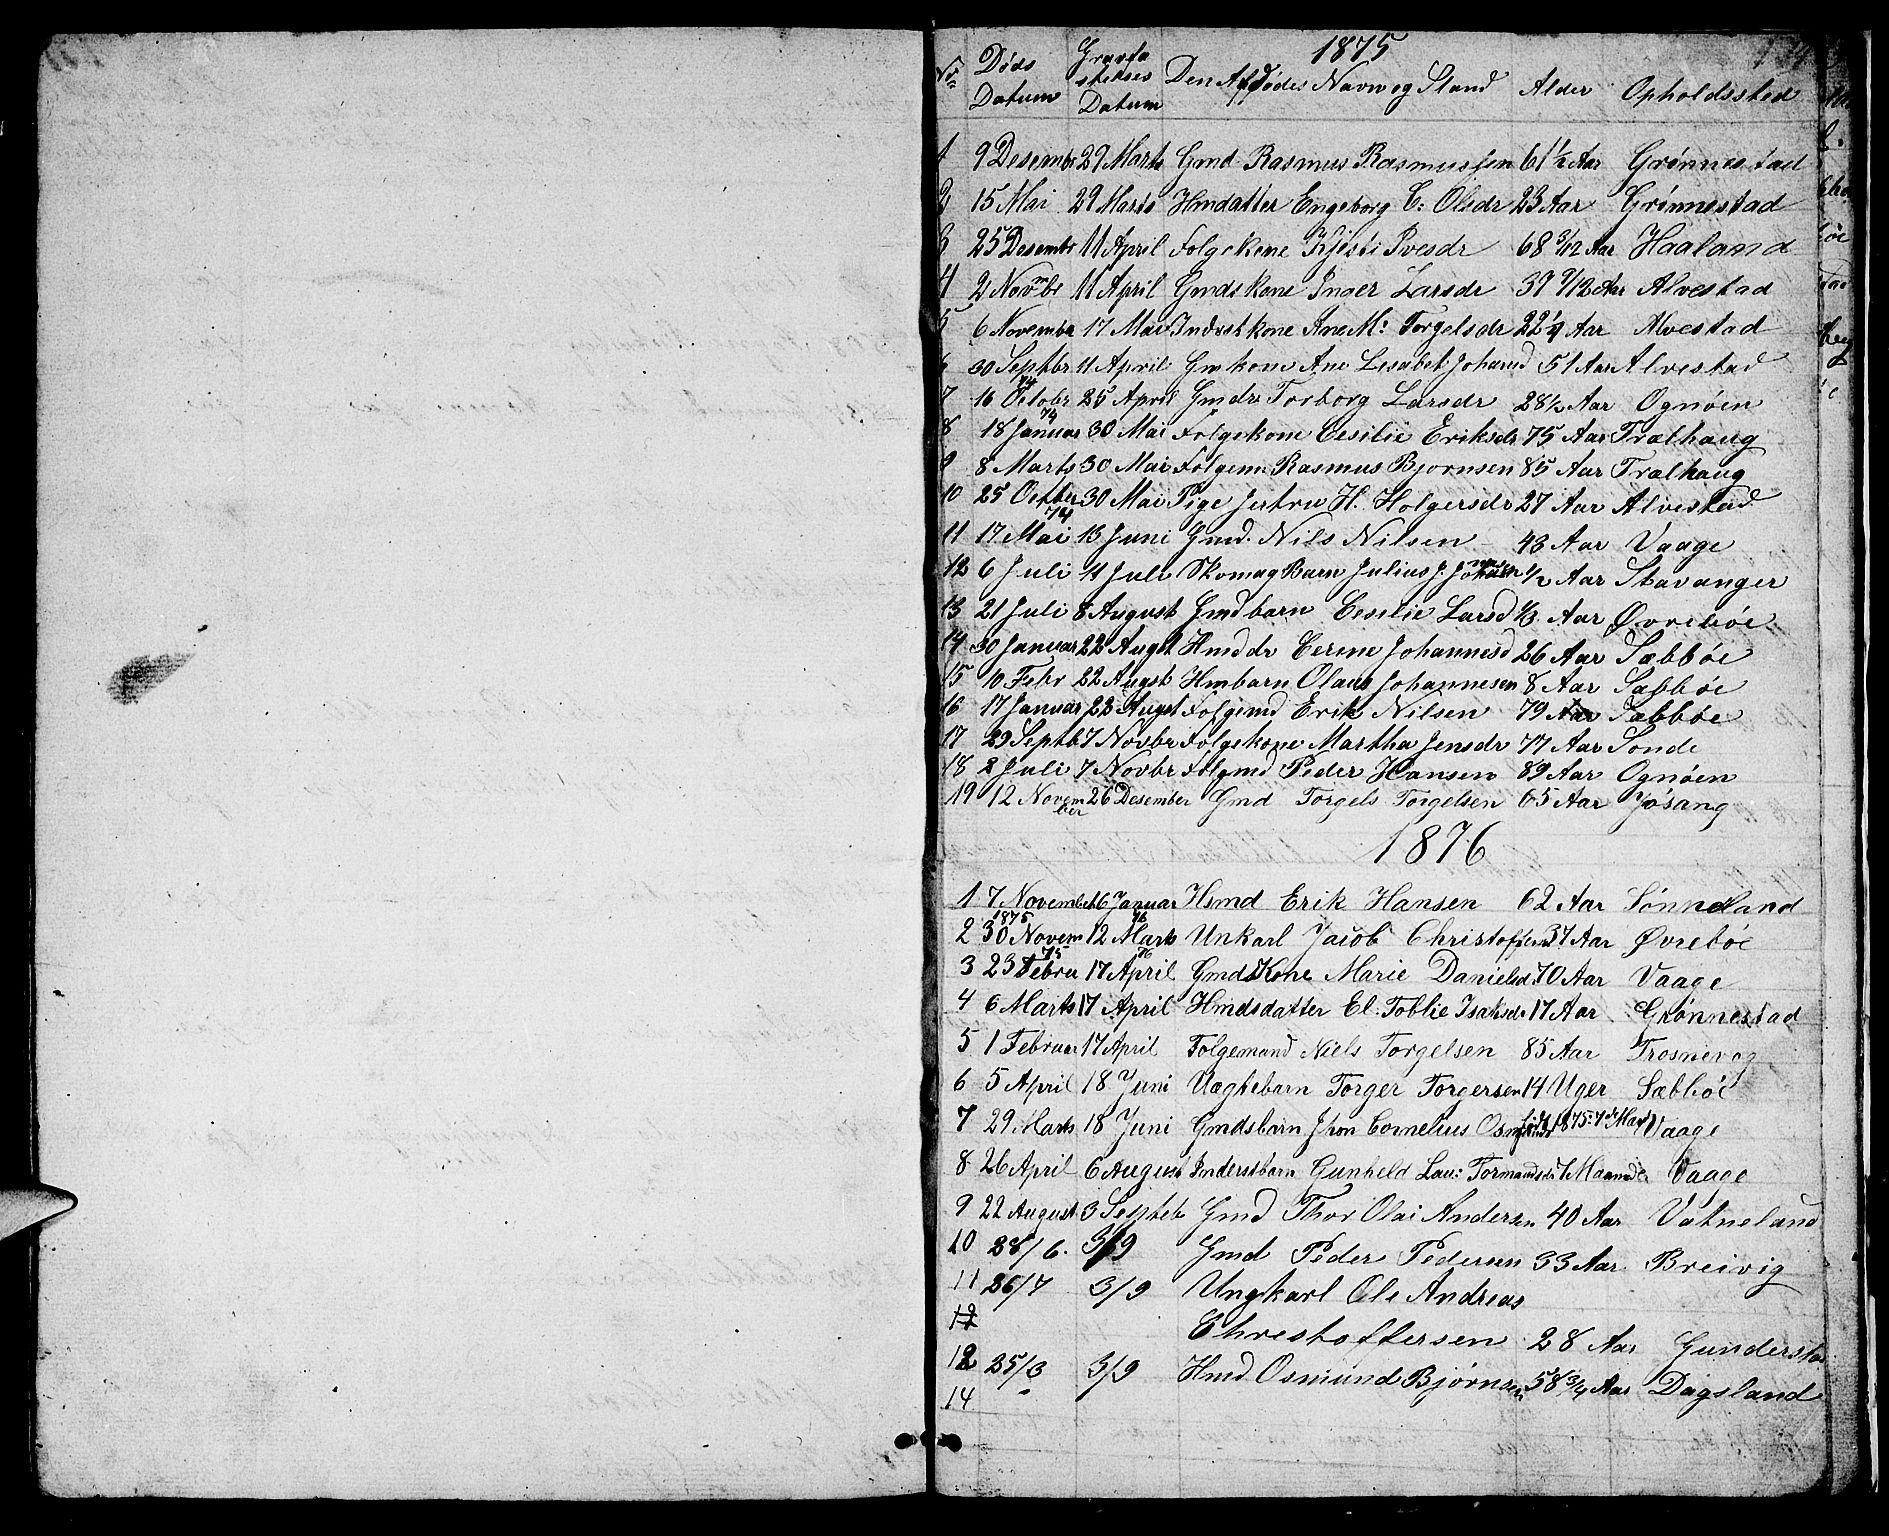 1875
No Døds Datum Gravfæstelses Datum Den Afdødes Navn og Stand Alder Opholdssted
1 9 Desembr 29 Marts Gmd Rasmus Rasmussen 61 1/2 Aar Grønnestad
2 15 Mai 29 Marts Hmdatter Engeborg C: Olsdr 23 Aar Grønnestad
3 25 Desembr 11 April Folgekone Kjesti Ivesdr 68 3/12 Aar Haaland
4 2 Novmbr 11 April Gmds Kone Inger Larsdr 39 9/12 Aar Alvestad
5 6 Novembr 17 Mai Inderstkone Ane M: Torgelsdr 22 1/4 Aar Alvestad
6 30 Septbr 11 April Gmkone Ane Lesabet Johansd 51 Aar Alvestad
7 16 Octobr 74 25 April Gmdr Torborg Larsdr 28 1/2 Aar Ognøen
8 18 Januar 74 30 Mai Folgekone Cesilie Eriksdr 75 Aar Trælhaug
9 8 Marts 30 Mai Folgem Rasmus Bjornsen 85 Aar Trælhaug
10 25 Octber 30 Mai Pige Jertru H. Holgersdr 27 Aar Alvestad
11 17 Mai 74 13 Juni Gmd. Nils Nilsen 43 Aar Vaage
12 6 Juli 11 Juli Skomag Barn Julius J. Johansen 1/2 Aar Stavanger
13 21 Juli 8 August Gmdbarn Cesilie Larsd 1/3 Aar Øvrebøe
14 30 Januar 22 Augst Hmddr Cerine Johannesd 26 Aar Sæbbøe
15 10 Febr 22 Augst Hmbarn Olaus Johannesen 8 Aar Sæbbøe
16 17 Januar 22 Augst Folgemd Erik Nilsen 79 Aar Sæbbøe
17 29 Septb 7 Novbr Folgekone Martha Jensdr 77 Aar Sonde
18 2 Juli 7 Novbr Folgmd Peder Hansen 89 Aar Ognøen
19 12 November 26 Desember Gmd Torgels Torgelsen 65 Aar Jøsang
1876
1 7 November 1875 16 Januar 76 Hsmd Erik Hansen 62 Aar Sønneland
2 30 Novem 75 12 Marts 76 Unkarl Jacob Christoffersen 37 Aar Øvrebøe
3 23 Febru 17 April GmdsKone Marie Danielsd 70 Aar Vaage
4 6 Marts 17 April Hmdsdatter El: Toblie Isaksdr 17 Aar Grønnestad
5 1 Februar 17 April Folgemand Niels Torgelsen 85 Aar Trosnevag
6 5 April 18 Juni Uægtebarn Torger Torgersen 14 Uger Sæbbøe
7 29 Marts 18 Juni Gmdsbarn Jhon Cornelius Osmundsen født 1875: 7de Mai Vaage
8 26 April 6 August Inderstbarn Gunheld Lau: Tormandsdr 7 Maaneder Vaage
9 22 August 3 Septeb Gmd Thor Olai Andersen 40 Aar Vatneland
10 28/6. 3/9 Gmd Peder Pedersen 33 Aar Breivig
11 26/7 3/9 Ungkarl Ole Andreas
12 Chrestoffersen 28 Aar Gunderstad
12 25/3 3/9 Hmd Osmund Bjørnsen 58 3/4 Aar Dagsland
14